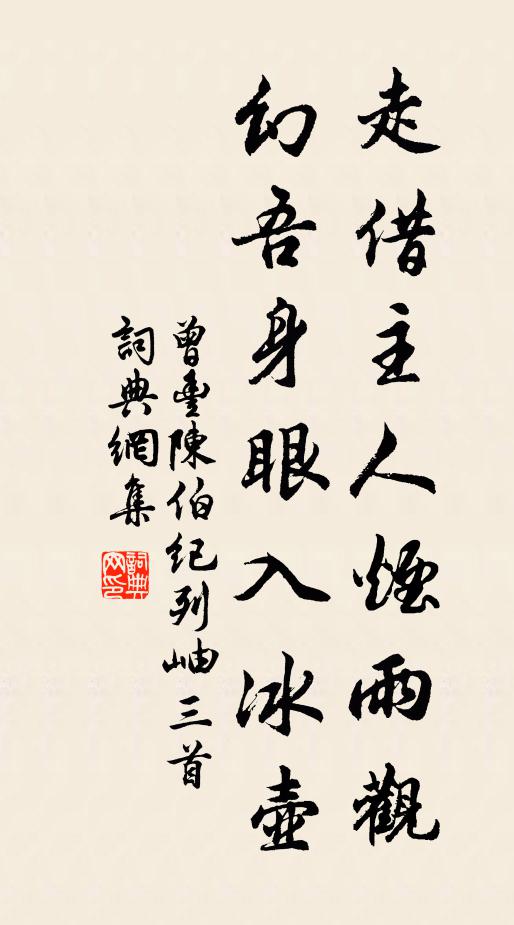 走借主人煙雨觀
幻吾身眼入冰壺
曾豐陳伯紀列岫三首
詞典網集
詞典网印